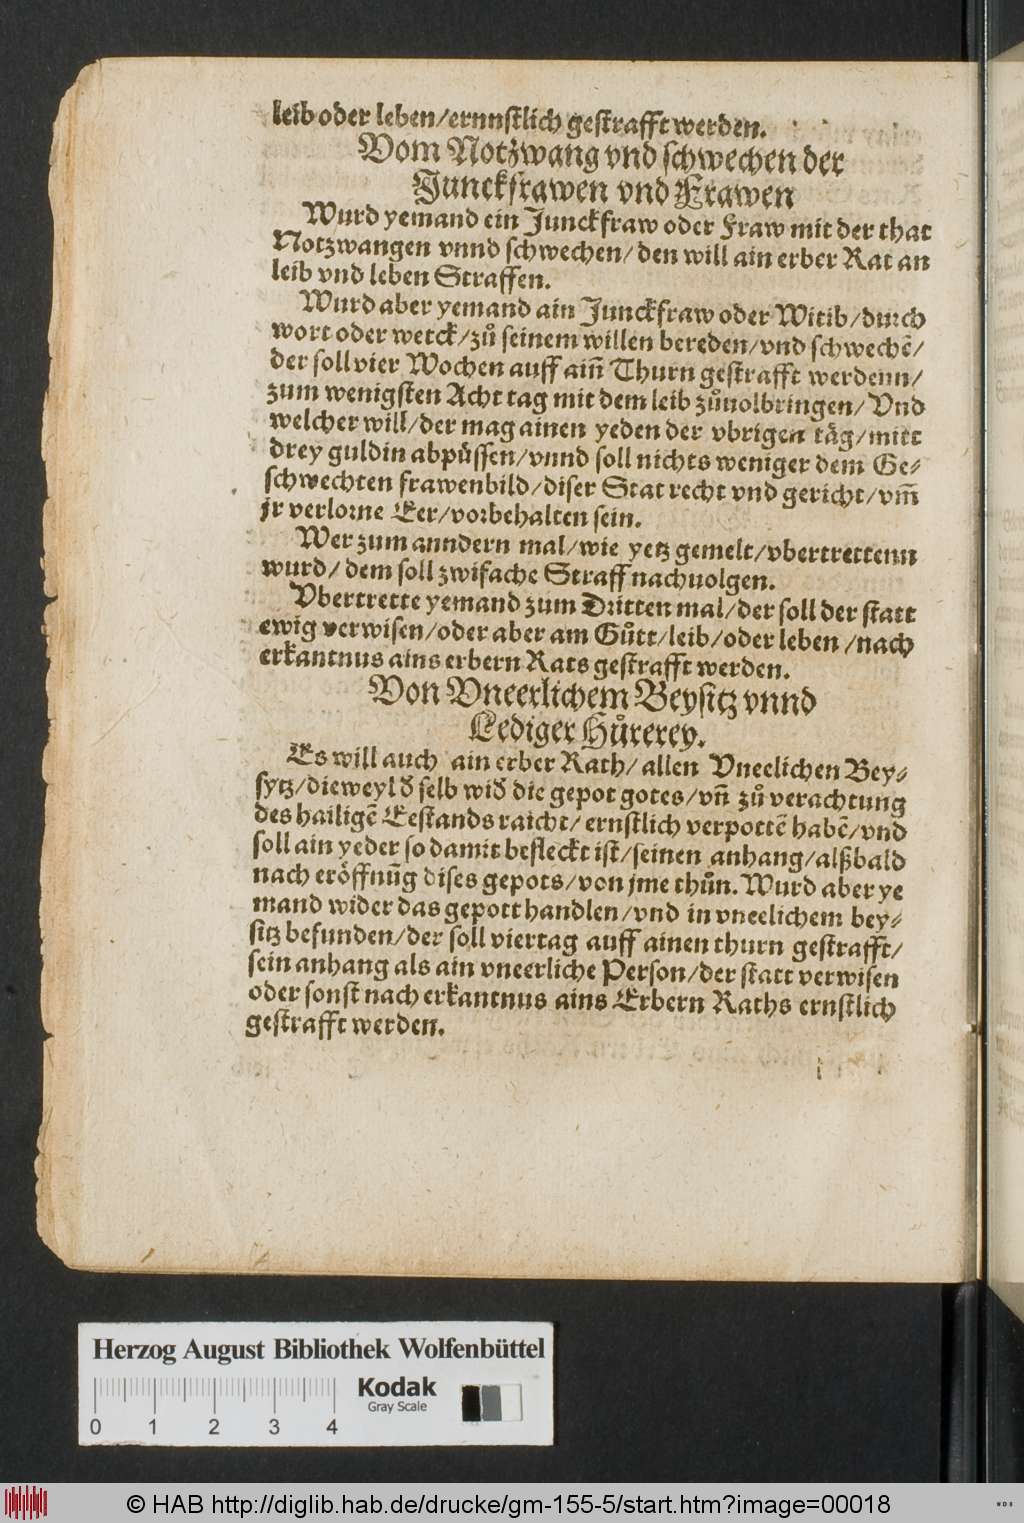 leib oder leben/ernnstlich gestrafft werden.
Vom Notzwang vnd schwechen der
Junckfrawen vnd Frawen
Wurd yemand ein Junckfraw oder Fraw mit der that
Notzwangen vnnd schwechen/den will ain erber Rat an
leib vnd leben Straffen.
Wurd aber yemand ain Junckfraw oder Witib/durch
wort oder werck/zů seinem willen bereden/vnd schwechē/
der soll vier Wochen auff ain̄ Thurn gestrafft werdenn/
zum wenigsten Acht tag mit dem leib zůuolbringen/Vnd
welcher will/der mag ainen yeden der vbrigen täg/mitt
drey guldin abpůssen/vnnd soll nichts weniger dem Ge-
schwechten frawenbild/diser Stat recht vnd gericht/vm̄
jr verlorne Eer/vorbehalten sein.
Wer zum anndern mal/wie yetz gemelt/vbertrettenn
wurd/dem soll zwifache Straff nachuolgen.
Vbertrette yemand zum Dritten mal/der soll der statt
ewig verwisen/oder aber am Gůtt/leib/oder leben/nach
erkantnus ains erbern Rats gestrafft werden.
Von Vneerlichem Beysitz vnnd
Lediger Hůrerey.
Es will auch ain erber Rath/allen Vneelichen Bey-
sytz/dieweyl d̄ selb wid̄ die gepot gotes/vn̄ zů verachtung
des hailigē Eestands raicht/ernstlich verpottē habē/vnd
soll ain yeder so damit befleckt ist/seinen anhang/alßbald
nach eröffnūg dises gepots/von jme thůn. Wurd aber ye
mand wider das gepott handlen/vnd in vneelichem bey-
sitz befunden/der soll viertag auff ainen thurn gestrafft/
sein anhang als ain vneerliche Person/der statt verwisen
oder sonst nach erkantnus ains Erbern Raths ernstlich
gestrafft werden.
Herzog August Bibliothek Wolfenbüttel
Kodak
Gray Scale
0 1 2 3 4
© HAB http://diglib.hab.de/drucke/gm-155-5/start.htm?image=00018